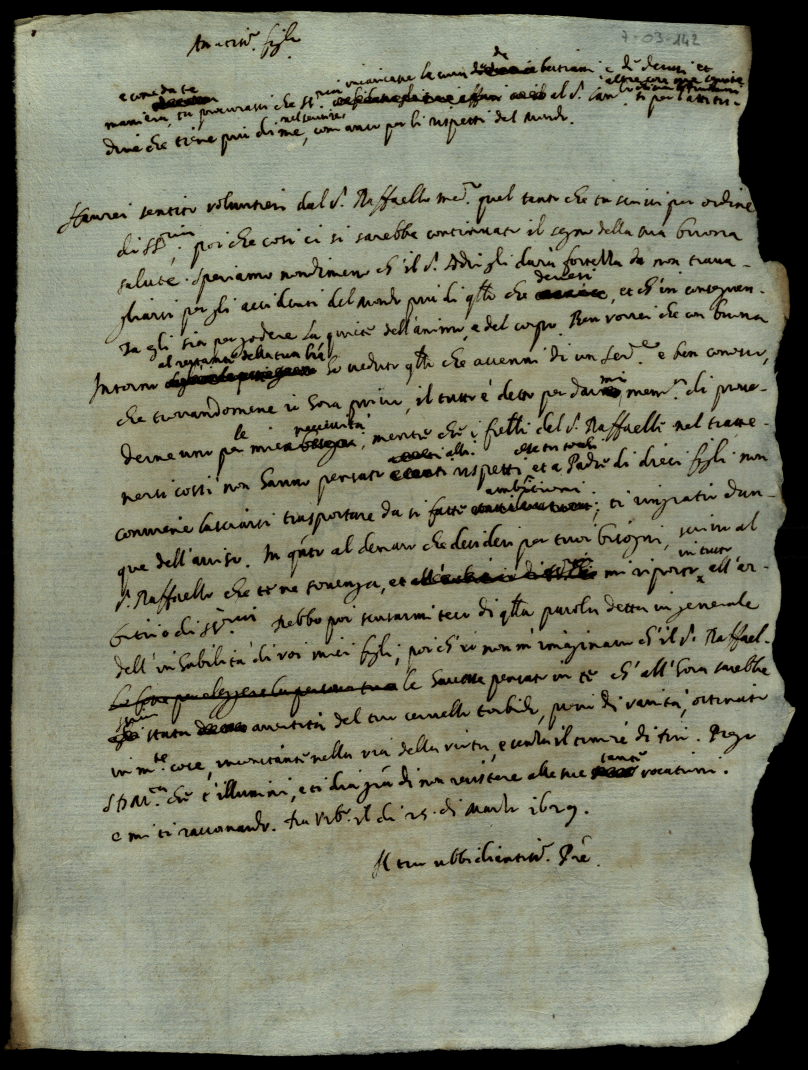 7-03-142
Amatiss.º figlio
e come da te
maniera, tu procurassi che SS.ria incaricasse la cura de bestiami e di denari et
al S.r Cam.
dine che tiene piu di me, nel servire, com anco per li rispetti del Mondo.
Haurei sentito volontieri dal S.r Raffaello med.º quel tanto che tu scrivi per ordine
di SS.ria poi che cosi ci si sarebbe continuato il segno della sua buona
salute. Speriamo nondimeno ch'il S.r Iddio gli darà fortezza da non trava-
gliarsi per gli accidenti del Mondo piu di q.llo che devesi, et ch'in conseguen-
za gli sia per godere la quiete dell'animo, e del corpo. Ben vorrei che con buona
Intorno al restante della tua l'ra ho veduto q.llo che accenni di un Ser.re e ben conosco,
che trovandomene io hora privo, il tutto è detto per darmi mem.ª di prove-
dermene uno per le mie necessità, mentre che i fr'elli del S.r Raffaello nel tratte-
nersi costi non hanno pensato rispetti, et a Padre di dieci figli non
conviene lasciarsi trasportare da si fatte ambitioni; ti ringratio dun-
que dell'aviso. In q.nto al denaro che desideri per tuoi bisogni, scrivo al
S.r Raffaello che te ne sovenga, et mi riporto in tutto all'ar-
bitrio di SS.ria Debbo poi scusarmi teco di q.lla parola detta in generale
dell'inhabilità di voi miei figli, poi ch'io non m'imaginavo ch'il S.r Raffael-
lo havesse pensato in te ch'all'hora sarebbe
stata avertita del tuo cervello torbido, pieno di vanità, ostinato
in m.te cose, incostante nella via della virtu, e senza il timore di Dio. Prego
S.D.M.tà che t'illumini, e ti dia gra' di non resistere alle sue sante vocationi.
e mi ti raccomando. Da Urb.º il dì 25. di Marzo 1629.
Il tuo ubbidientiss.º P're